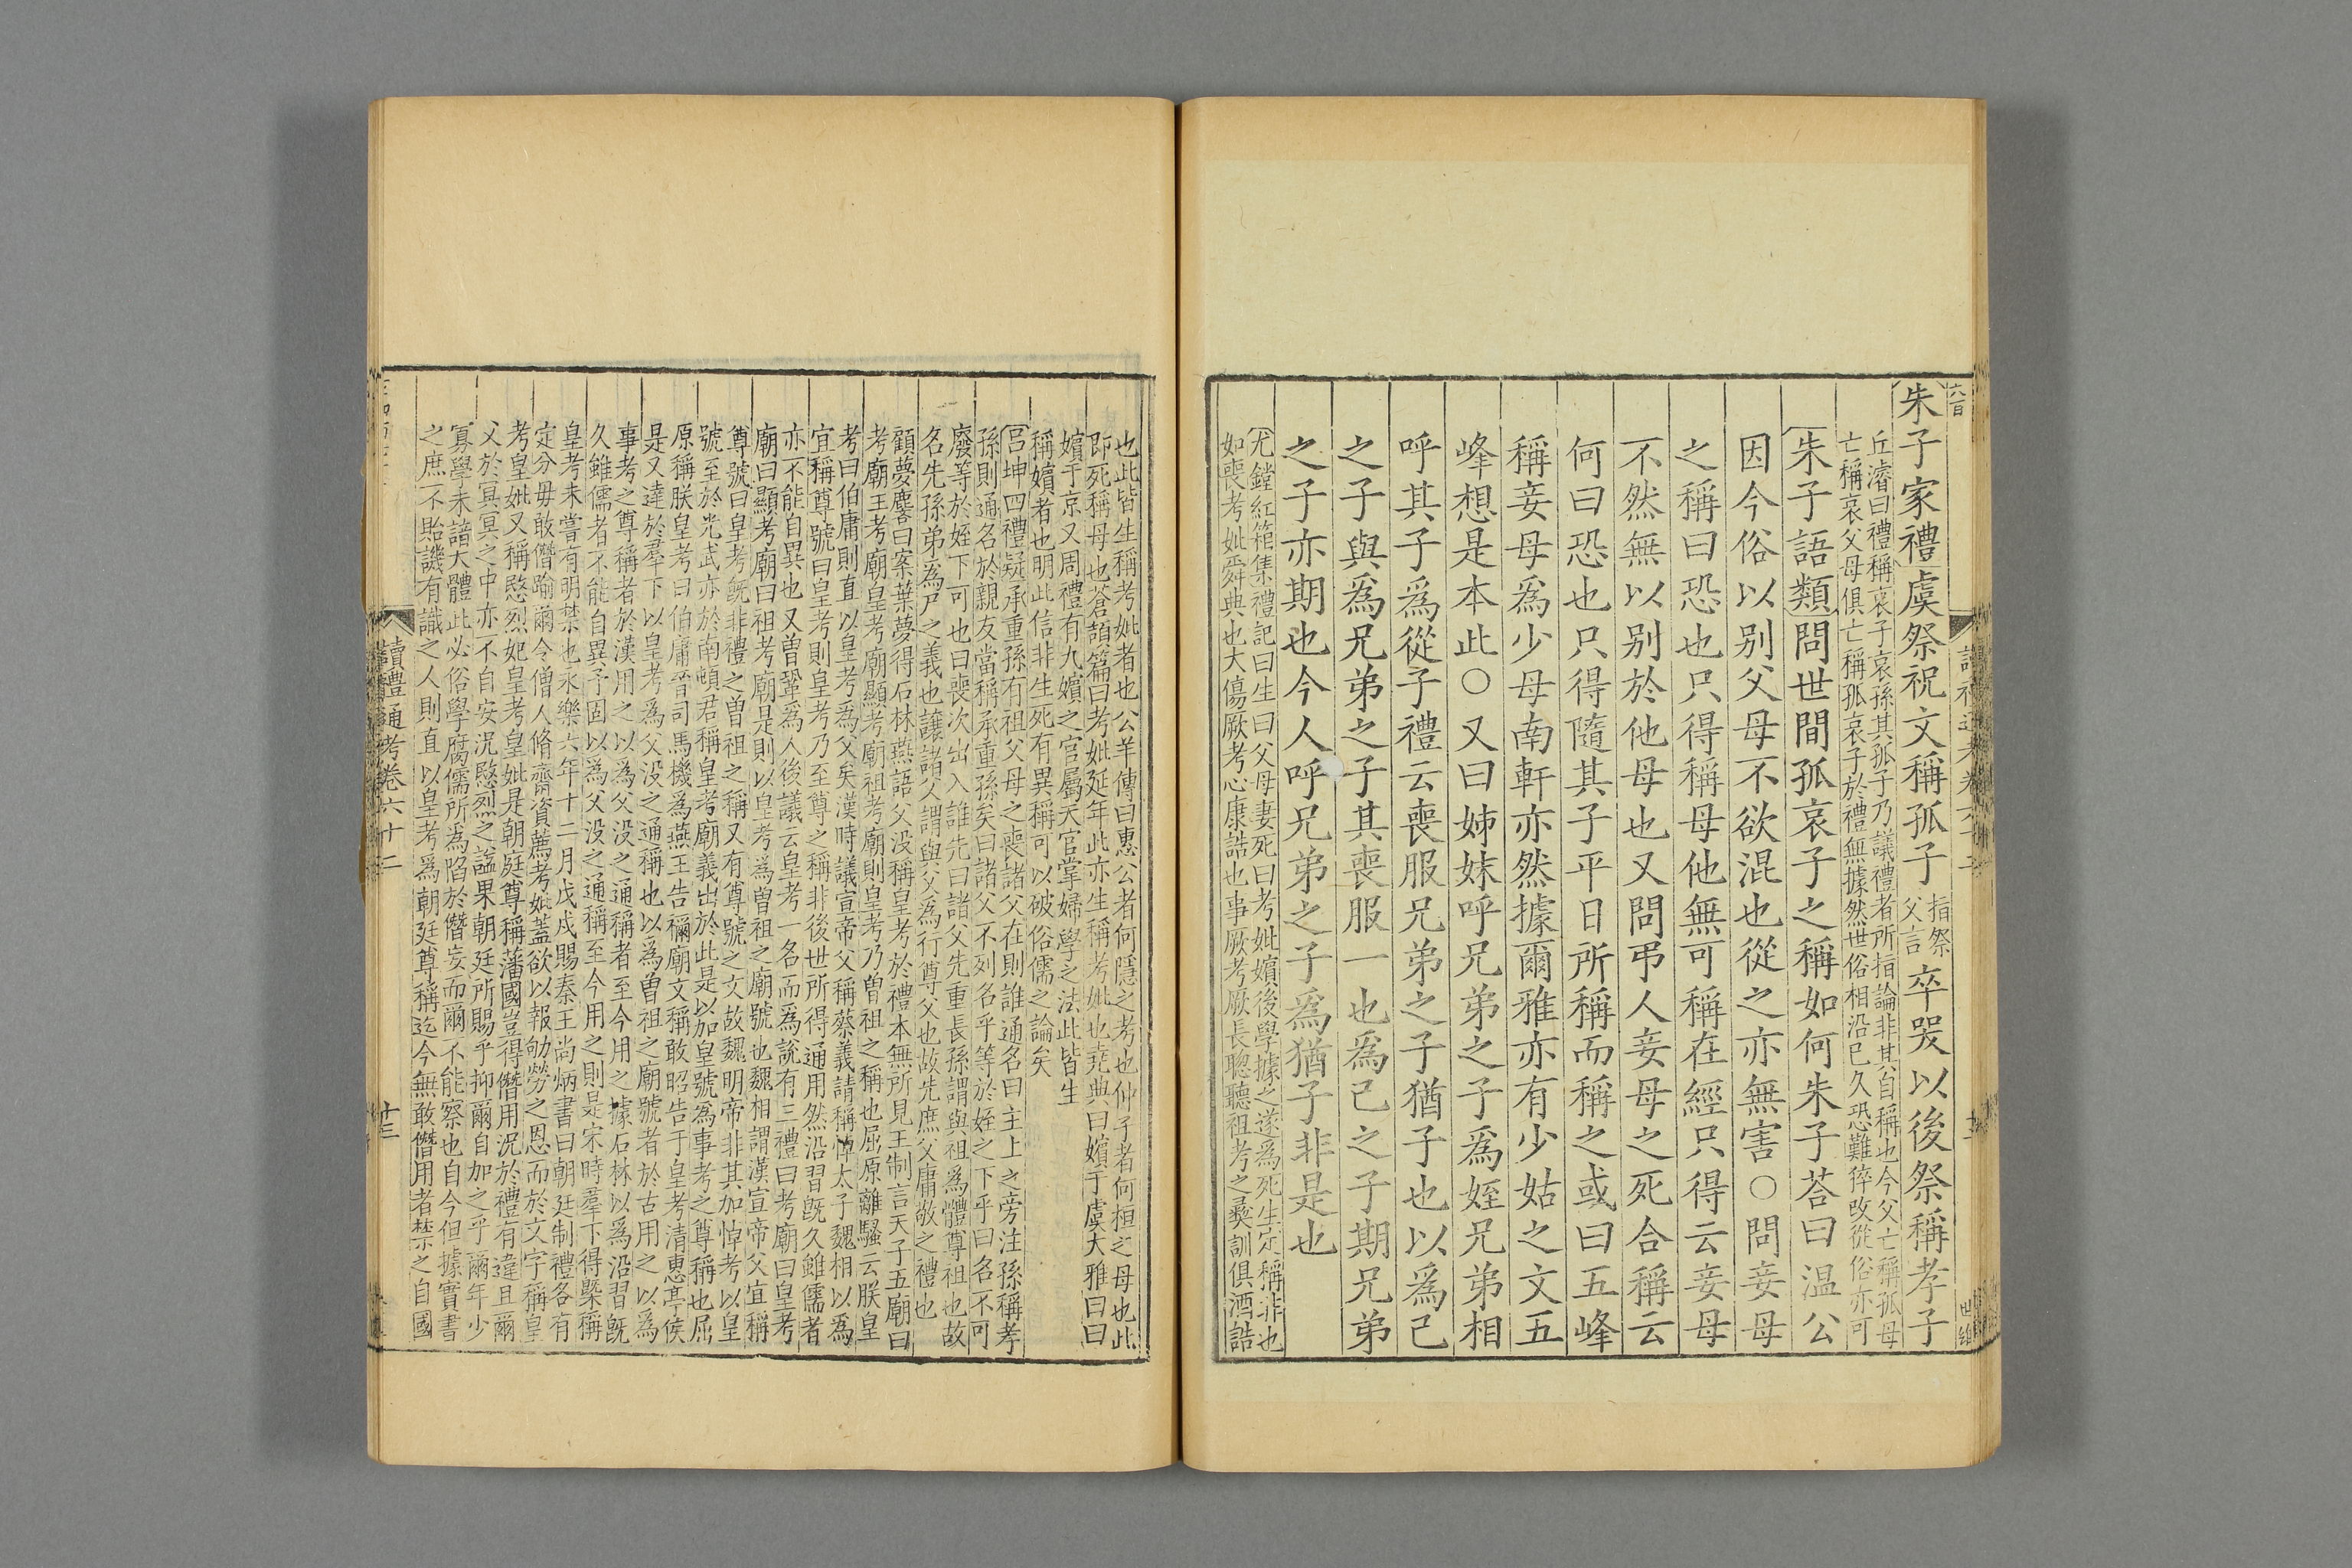 朱子家禮虞祭祝文稱孤子指祭父言卒哭以後祭稱孝子
丘濬曰禮稱哀子哀孫其孤子乃議禮者所指論非其自稱也今父亡稱孤母
亡稱哀父母俱亡稱孤哀子於禮無據然世俗相沿已久恐難猝改從俗亦可
朱子語類問世間孤哀子之稱如何朱子荅曰温公
因今俗以别父母不欲混也從之亦無害○問妾母
之稱曰恐也只得稱母他無可稱在經只得云妾母
不然無以别於他母也又問弔人妾母之死合稱云
何曰恐也只得隨其子平日所稱而稱之或曰五峰
稱妾母爲少母南軒亦然據爾雅亦有少姑之文五
峰想是本此○又曰姊妹呼兄弟之子爲姪兄弟相
呼其子爲從子禮云喪服兄弟之子猶子也以爲己
之子與爲兄弟之子其喪服一也爲己之子期兄弟
之子亦期也今人呼兄弟之子爲猶子非是也
尤鏜紅箱集禮記曰生曰父母妻死曰考妣嬪後學據之遂爲死生定稱非也
如喪考妣舜典也大傷厥考心康誥也事厥考厥長聰聽祖考之彜訓俱酒誥
也此皆生稱考妣者也公羊傳曰惠公者何隱之考也仲子者何桓之母也此
即死稱母也蒼頡篇曰考妣延年此亦生稱考妣也堯典曰嬪于虞大雅曰曰
嬪于京又周禮有九嬪之官屬天官掌婦學之法此皆生
稱嬪者也明此信非生死有異稱可以破俗儒之論矣
呂坤四禮疑承重孫有祖父母之喪諸父在則誰通名曰主上之旁注孫稱孝
孫則通名於親友當稱承重孫矣曰諸父不列名乎等於姪之下乎曰名不可
廢等於姪下可也曰喪次出入誰先曰諸父先重長孫謂與祖爲體尊祖也故
名先孫弟爲尸之義也讓諸父謂與父爲行尊父也故先庶父庸敬之禮也
顧夢麐曰案葉夢得石林燕語父没稱皇考於禮本無所見王制言天子五廟曰
考廟王考廟皇考廟顯考廟祖考廟則皇考乃曽祖之稱也屈原離騷云朕皇
考曰伯庸則直以皇考爲父矣漢時議宣帝父稱蔡義請稱悼太子魏相以爲
宜稱尊號曰皇考則皇考乃至尊之稱非後世所得通用然沿習旣久雖儒者
亦不能自異也又曽鞏爲人後議云皇考一名而爲說有三禮曰考廟曰皇考
廟曰顯考廟曰祖考廟是則以皇考爲曽祖之廟號也魏相謂漢宣帝父宜稱
尊號曰皇考旣非禮之曽祖之稱又有尊號之文故魏明帝非其加悼考以皇
號至於光武亦於南頓君稱皇考廟義出於此是以加皇號爲事考之尊稱也屈
原稱朕皇考曰伯庸晉司馬機爲燕王告禰廟文稱敢昭告于皇考清惠亭侯
是又達於羣下以皇考爲父没之通稱也以爲曽祖之廟號者於古用之以爲
事考之尊稱者於漢用之以爲父没之通稱者至今用之據石林以爲沿習旣
久雖儒者不能自異予固以爲父没之通稱至今用之則是宋時羣下得槩稱
皇考未嘗有明禁也永樂六年十二月戊戌賜秦王尚炳書曰朝廷制禮各有
定分毋敢僭踰爾令僧人脩齋資薦考妣蓋欲以報劬勞之恩而於文字稱皇
考皇妣又稱愍烈妃皇考皇妣是朝庭尊稱藩國豈得僭用况於禮有違且爾
父於冥冥之中亦不自安况愍烈之諡果朝廷所賜乎抑爾自加之乎爾年少
寡學未諳大體此必俗學腐儒所爲陷於僭妄而爾不能察也自今但據實書
之庶不貽譏有識之人則直以皇考爲朝廷尊稱迄今無敢僭用者禁之自國
讀禮通考卷六十二
十三